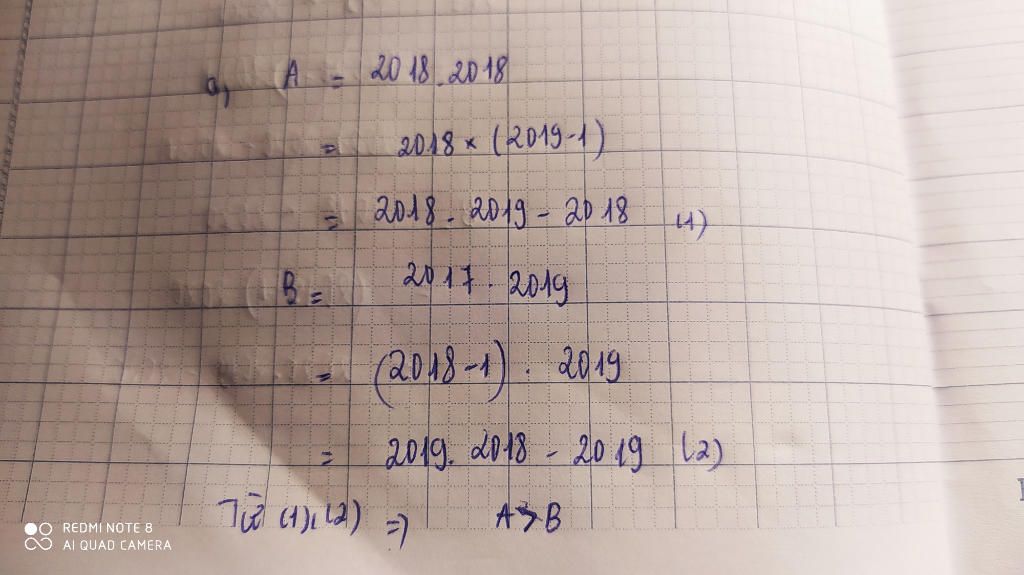 a, A = 2018.2018
= 2018 × (2019-1)
= 2018 . 2019 - 2018 (1)
B = 2017 . 2019
= (2018-1) . 2019
= 2019. 2018 - 2019 (2)
Từ (1), (2) => A > B
REDMI NOTE 8
AI QUAD CAMERA